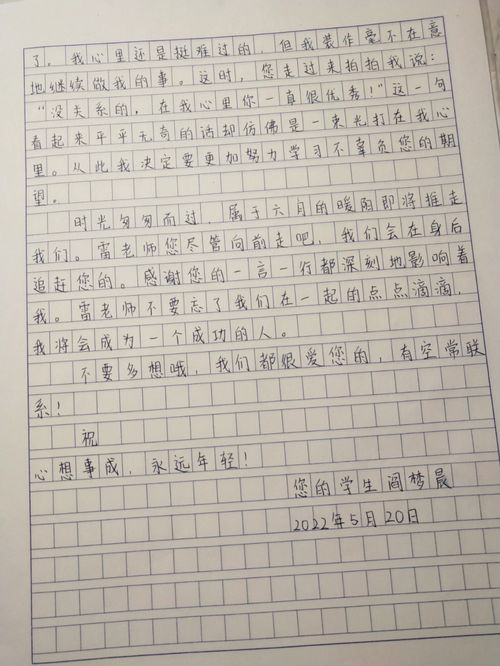 了。我心里还是挺难过的，但我装作毫不在意
地继续做我的事。这时，您走过来拍拍我说：
“没关系的，在我心里你一直很优秀！”这一句
看起来平平无奇的话却仿佛是一束光打在我心
里。从此我决定要更加努力学习不辜负您的期
望。
时光匆匆而过，属于六月的暖阳即将推走
我们。雷老师您尽管向前走吧，我们会在身后
追赶您的。感谢您的一言一行都深刻地影响着
我。雷老师不要忘了我们在一起的点点滴滴，
我将会成为一个成功的人。
不要多想哦，我们都很爱您的，有空常联
系！
祝
心想事成，永远年轻！
您的学生阎梦晨
2022年5月20日